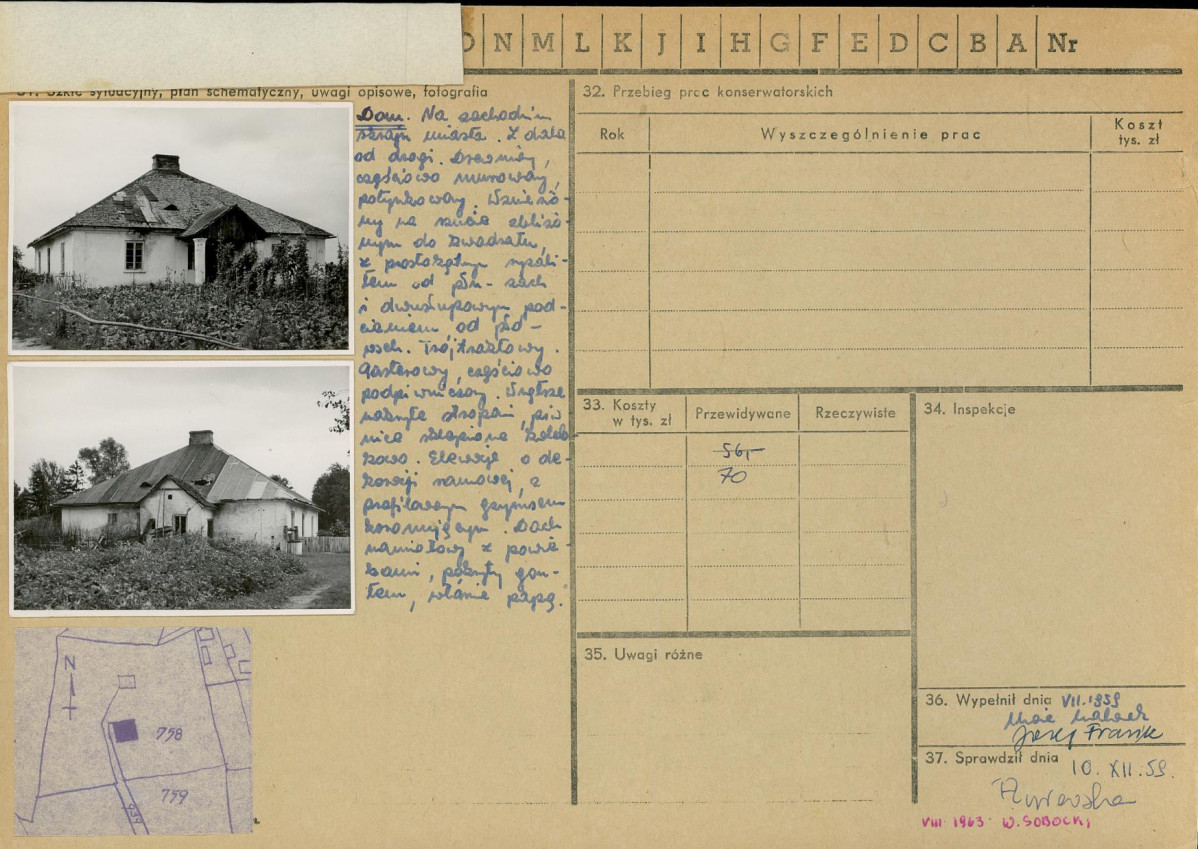 O N M L K J I H G F E D C B A Nr
31. Szkic sytuacyjny, plan schematyczny, uwagi opisowe, fotografia
Dom. Na zachodnim
skraju miasta. Z dala
od drogi. Drewniany,
częściowo murowany,
potynkowany. Wzniesio-
ny na rzucie zbliżo-
nym do kwadratu,
z prostokątnym ryzali-
tem od płn-zach
i dwusłupowym pod-
cieniem od płd-
wsch. Trójtraktowy.
Parterowy, częściowo
podpiwniczony. Wnętrze
nakryte stropami, piw
nica sklepiona koleb-
kowo. Elewacje o de-
koracji ramowej, z
profilowanym gzymsem
koronującym. Dach
namiotowy z
pokryty gon-
tem, papą.
N
758
759
934
32. Przebieg prac konserwatorskich
Rok Wyszczególnienie prac Koszt
tys. zł
33. Koszty
w tys. zł
Przewidywane Rzeczywiste
56,-
70
34. Inspekcje
35. Uwagi różne
36. Wypełnił dnia VII.1959
Józef Frazik
37. Sprawdził dnia 10.XII.59.
VIII 1963 W. SOBOCKI